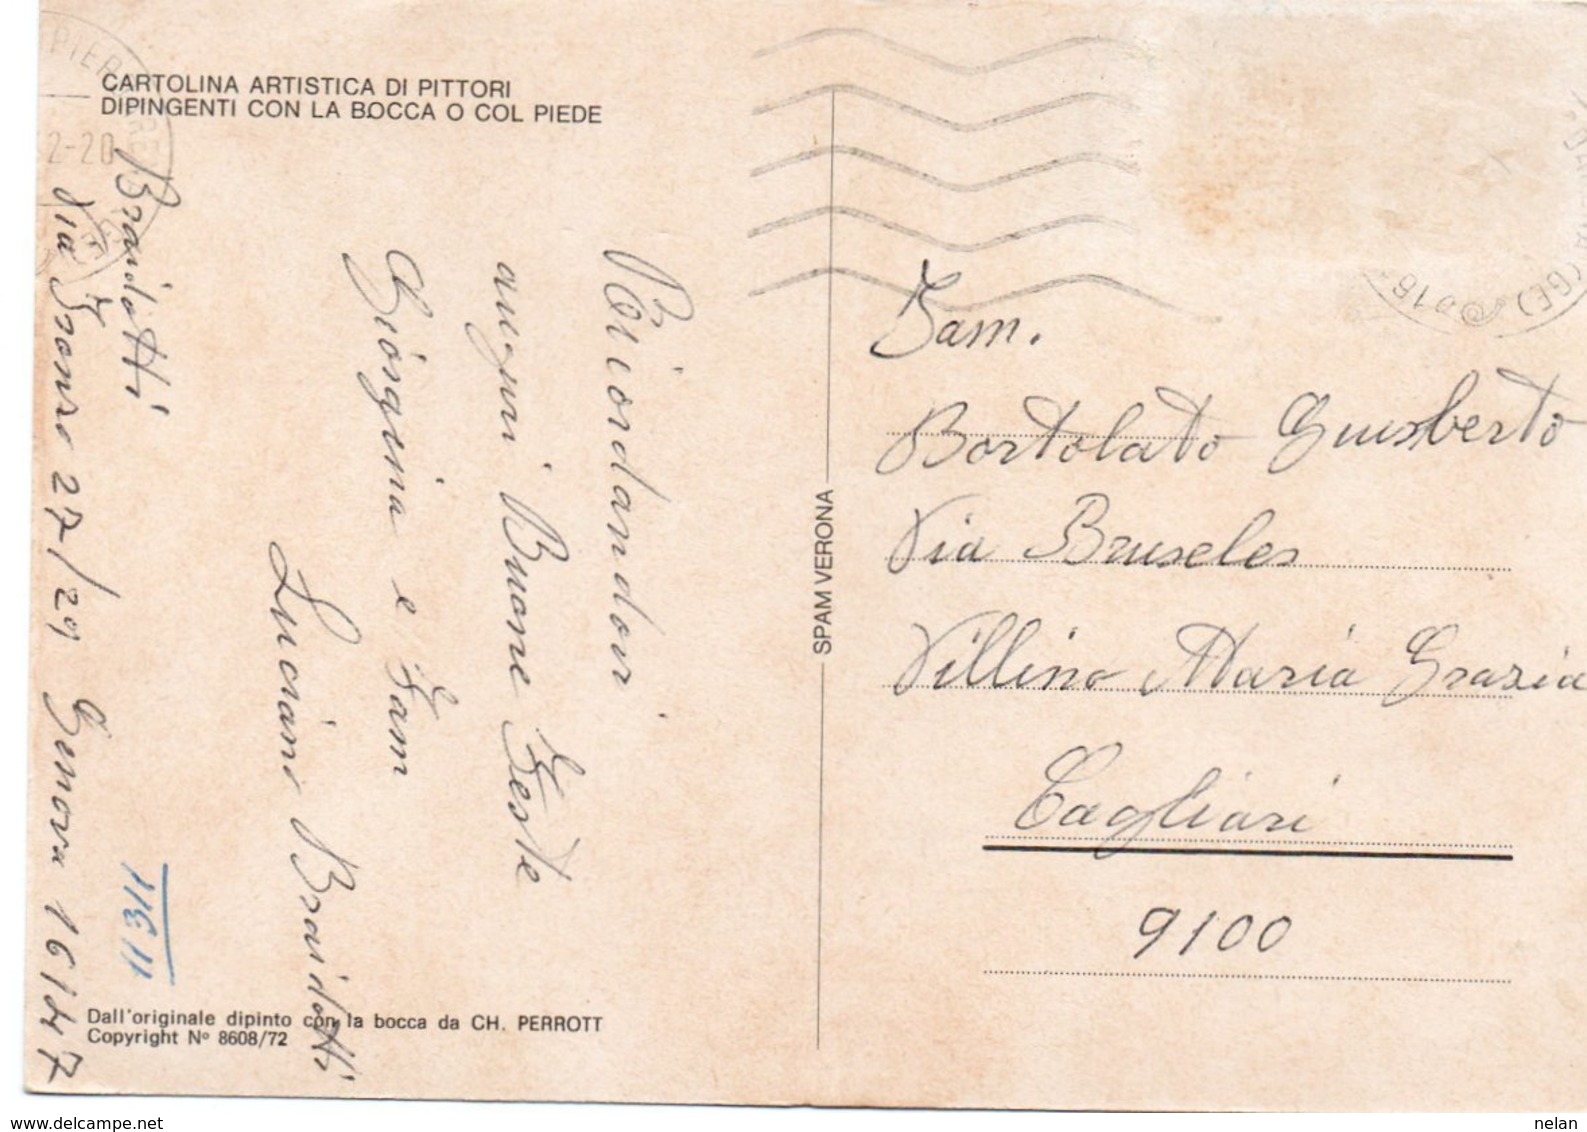 CARTOLINA ARTISTICA DI PITTORI
DIPINGENTI CON LA BOCCA O COL PIEDE
2-20
Ricordandovi
auguri Buone Feste
Giorgina e Fam
Luciano Braidotti
Braidotti
Via 27/29 Genova 16147
11311
SPAM VERONA
Fam.
Bortolato Gumberto
Via Bruseles
Villino Maria Grazia
Cagliari
9100
(GE)
Dall'originale dipinto con la bocca da CH. PERROTT
Copyright Nº 8608/72
nelan